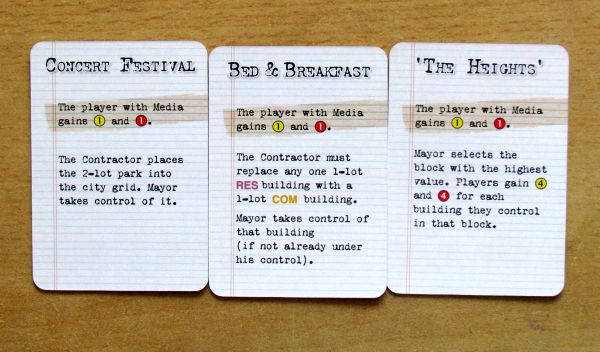 CONCERT FESTIVAL
The player with Media
gains 1 and 1.
The Contractor places
the 2-lot park into
the city grid. Mayor
takes control of it.
BED & BREAKFAST
The player with Media
gains 1 and 1.
The Contractor must
replace any one 1-lot
RES building with a
1-lot COM building.
Mayor takes control of
that building
(if not already under
his control).
'THE HEIGHTS'
The player with Media
gains 1 and 1.
Mayor selects the
block with the highest
value. Players gain 4
and 4 for each
building they control
in that block.